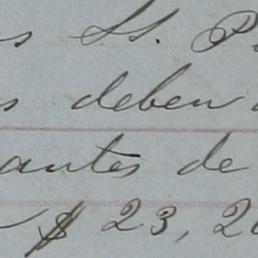 s SS. P
s deben
antes de
$ 23, 20